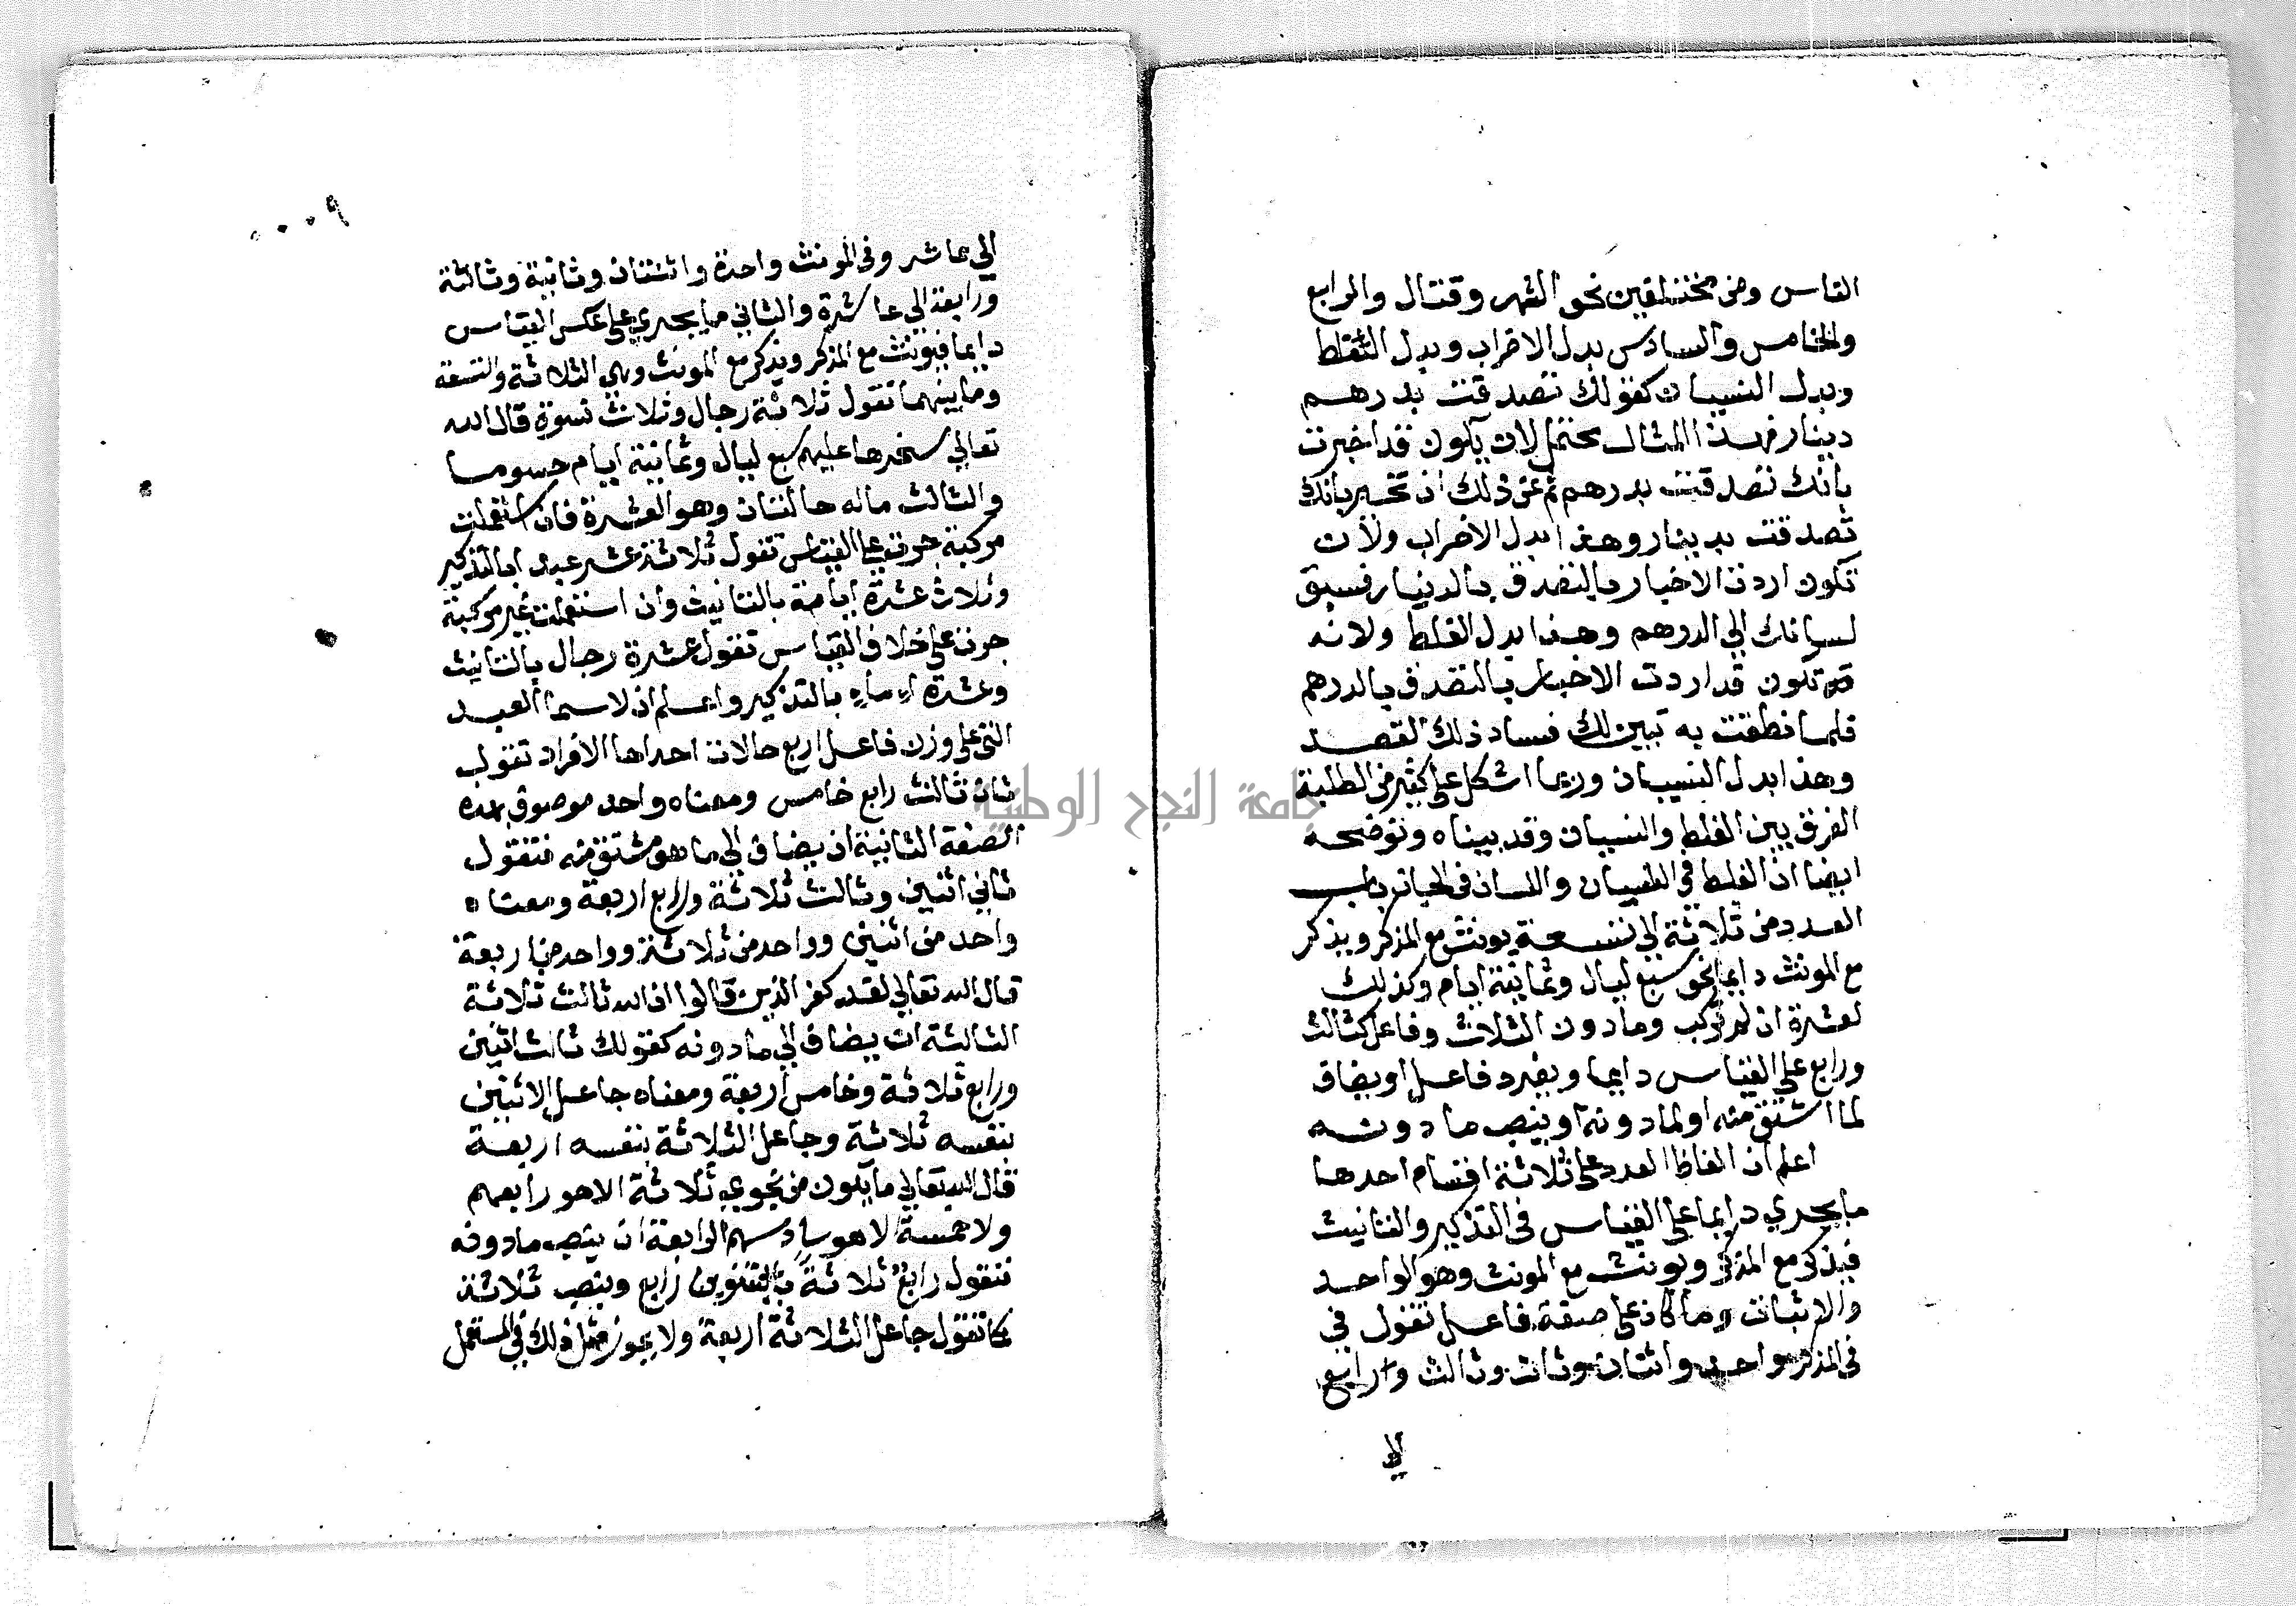 الناس ومن مختلفين نحو الشهر وقتال والرابع
والخامس والسادس بدل الاضراب وبدل الغلط
وبدل النسيان كقولك تصدقت بدرهم
دينار فهذا المثال محتمل لان يكون قد اخبرت
بانك تصدقت بدرهم ثم عن ذلك ان تخبر بانك
تصدقت بدينار وهذا بدل الاضراب ولان
تكون اردت الاخبار بالتصدق بالدينار فسبق
لسانك الي الدرهم وهذا بدل الغلط ولانه
تكون قد اردت الاخبار بالتصدق بالدرهم
فلما نطقت به تبين لك فساد ذلك القصد
وهذا بدل النسيان وربما اشكل علي كثير من الطلبة
الفرق بين الغلط والنسيان وقد بيناه ونوضحه
ايضا ان الغلط في اللسان والنسيان في الجنان باب
العدد من ثلاثة الي تسعة يونث مع المذكر ويذكر
مع المونث دايما نحو سبع ليال وثمانية ايام وكذلك
لعشرة ان لم تركب وما دون الثلاث وفاعل كثالث
ورابع علي القياس دايما ويفرد فاعل او يضاف
لما اشتق منه او لما دونه او ينصب ما دونه
اعلم ان الفاظ العدد علي ثلاثة اقسام احدها
ما يجري دايما علي القياس في التذكير والتانيث
فيذكر مع المذكر ويونث مع المونث وهو الواحد
والاثنان وما كان علي صيغة فاعل تقول في
في المذكر واحد واثنان وثان وثالث ورابع
لا
٩٠٠٠
الي عاشر وفي المونث واحدة واثنتان وثانية وثالثة
ورابعة الي عاشرة والثاني ما يجري علي عكس القياس
دايما فيونث مع المذكر ويذكر مع المونث وهي الثلاثة والتسعة
وما بينهما تقول ثلاثة رجال وثلاث نسوة قال الله
تعالي سخرها عليهم سبع ليال وثمانية ايام حسوما
والثالث ماله حالتان وهو العشرة فان استعملت
مركبة جرت علي القياس تقول ثلاثة عشر عبدا بالتذكير
وثلاث عشرة امة بالتانيث وان استعملت غير مركبة
جرت علي خلاف القياس تقول عشرة رجال بالتانيث
وعشرة اماء بالتذكير واعلم ان لاسما العدد
التي علي وزن فاعل اربع حالات احداها الافراد تقول
ثان ثالث رابع خامس ومعناه واحد موصوف بهذه
الصفة الثانية ان يضاف الي ما هو مشتق منه فتقول
ثاني اثنين وثالث ثلاثة ورابع اربعة ومعناه
واحد من اثنين وواحد من ثلاثة وواحد من اربعة
قال الله تعالي لقد كفر الذين قالوا ان الله ثالث ثلاثة
الثالثة ان يضاف الي ما دونه كقولك ثالث اثنين
ورابع ثلاثة وخامس اربعة ومعناه جاعل الاثنين
بنفسه ثلاثة وجاعل الثلاثة بنفسه اربعة
قال الله تعالي ما يكون من نجوي ثلاثة الا هو رابعهم
ولا خمسة الا هو سادسهم الرابعة ان ينصب ما دونه
فتقول رابعٌ ثلاثةً بالتنوين رابع وينصب ثلاثة
كما تقول جاعل الثلاثة اربعة ولا يجوز مثل ذلك في المستعمل
جامعة النجاح الوطنية